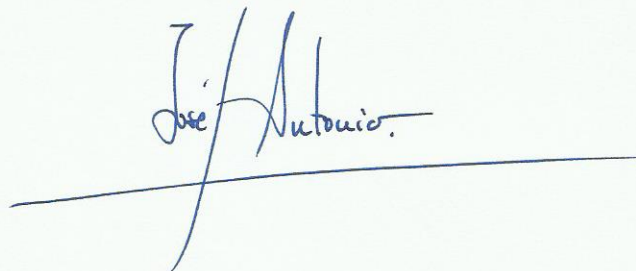 José Antonio.